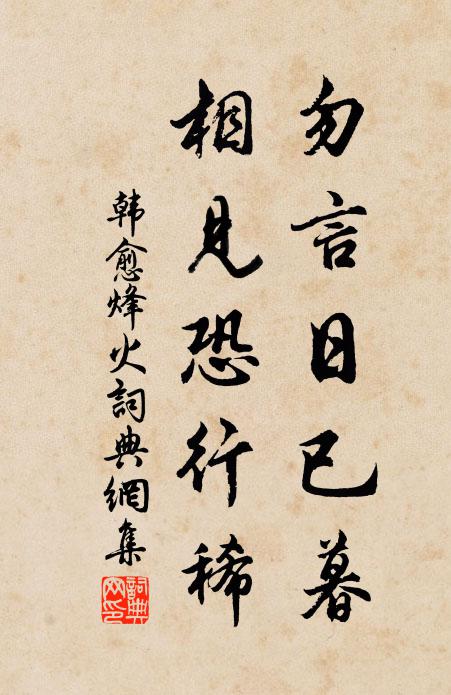 勿言日已暮
相見恐行稀
韩愈烽火詞典網集
詞典
网印